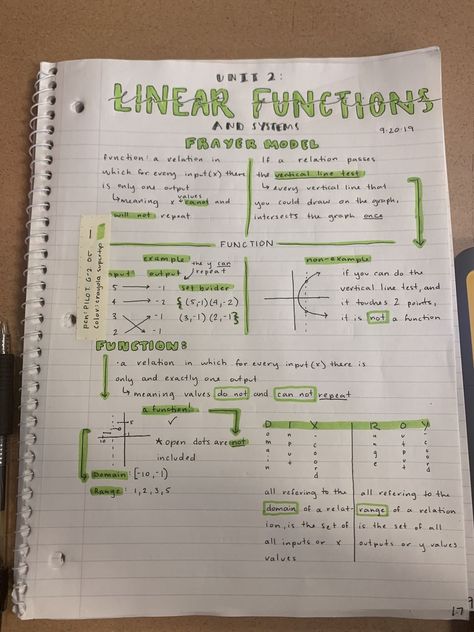 UNIT 2:
LINEAR FUNCTIONS
AND SYSTEMS
9·20·19
FRAYER MODEL
function: a relation in
which for every input(x) there
is only one output
↳ meaning x values cannot and
will not repeat
If a relation passes
the vertical line test
↳ every vertical line that
you could draw on the graph,
intersects the graph once
FUNCTION
example
the y can
repeat
input output
set builder
5 → -1
4 → -2
3 -1
2 -1
{(5,-1)(4,-2)
(3,-1)(2,-1)}
non-example
if you can do the
vertical line test, and
it touches 2 points,
it is not a function
pen: PILOT G-2 05
color: crayola supertips
FUNCTION:
· a relation in which for every input (x) there is
only and exactly one output
↳ meaning values do not and can not repeat
a function!
✓
* open dots are not
included
Domain: [-10,-1)
Range: 1, 2, 3, 5
D I X
Domain
input
x-coord
R O Y
Range
output
all refering to the
domain of a relat-
ion, is the set of
all inputs or x
values
all refering to the
range of a relation
is the set of all
outputs or y values